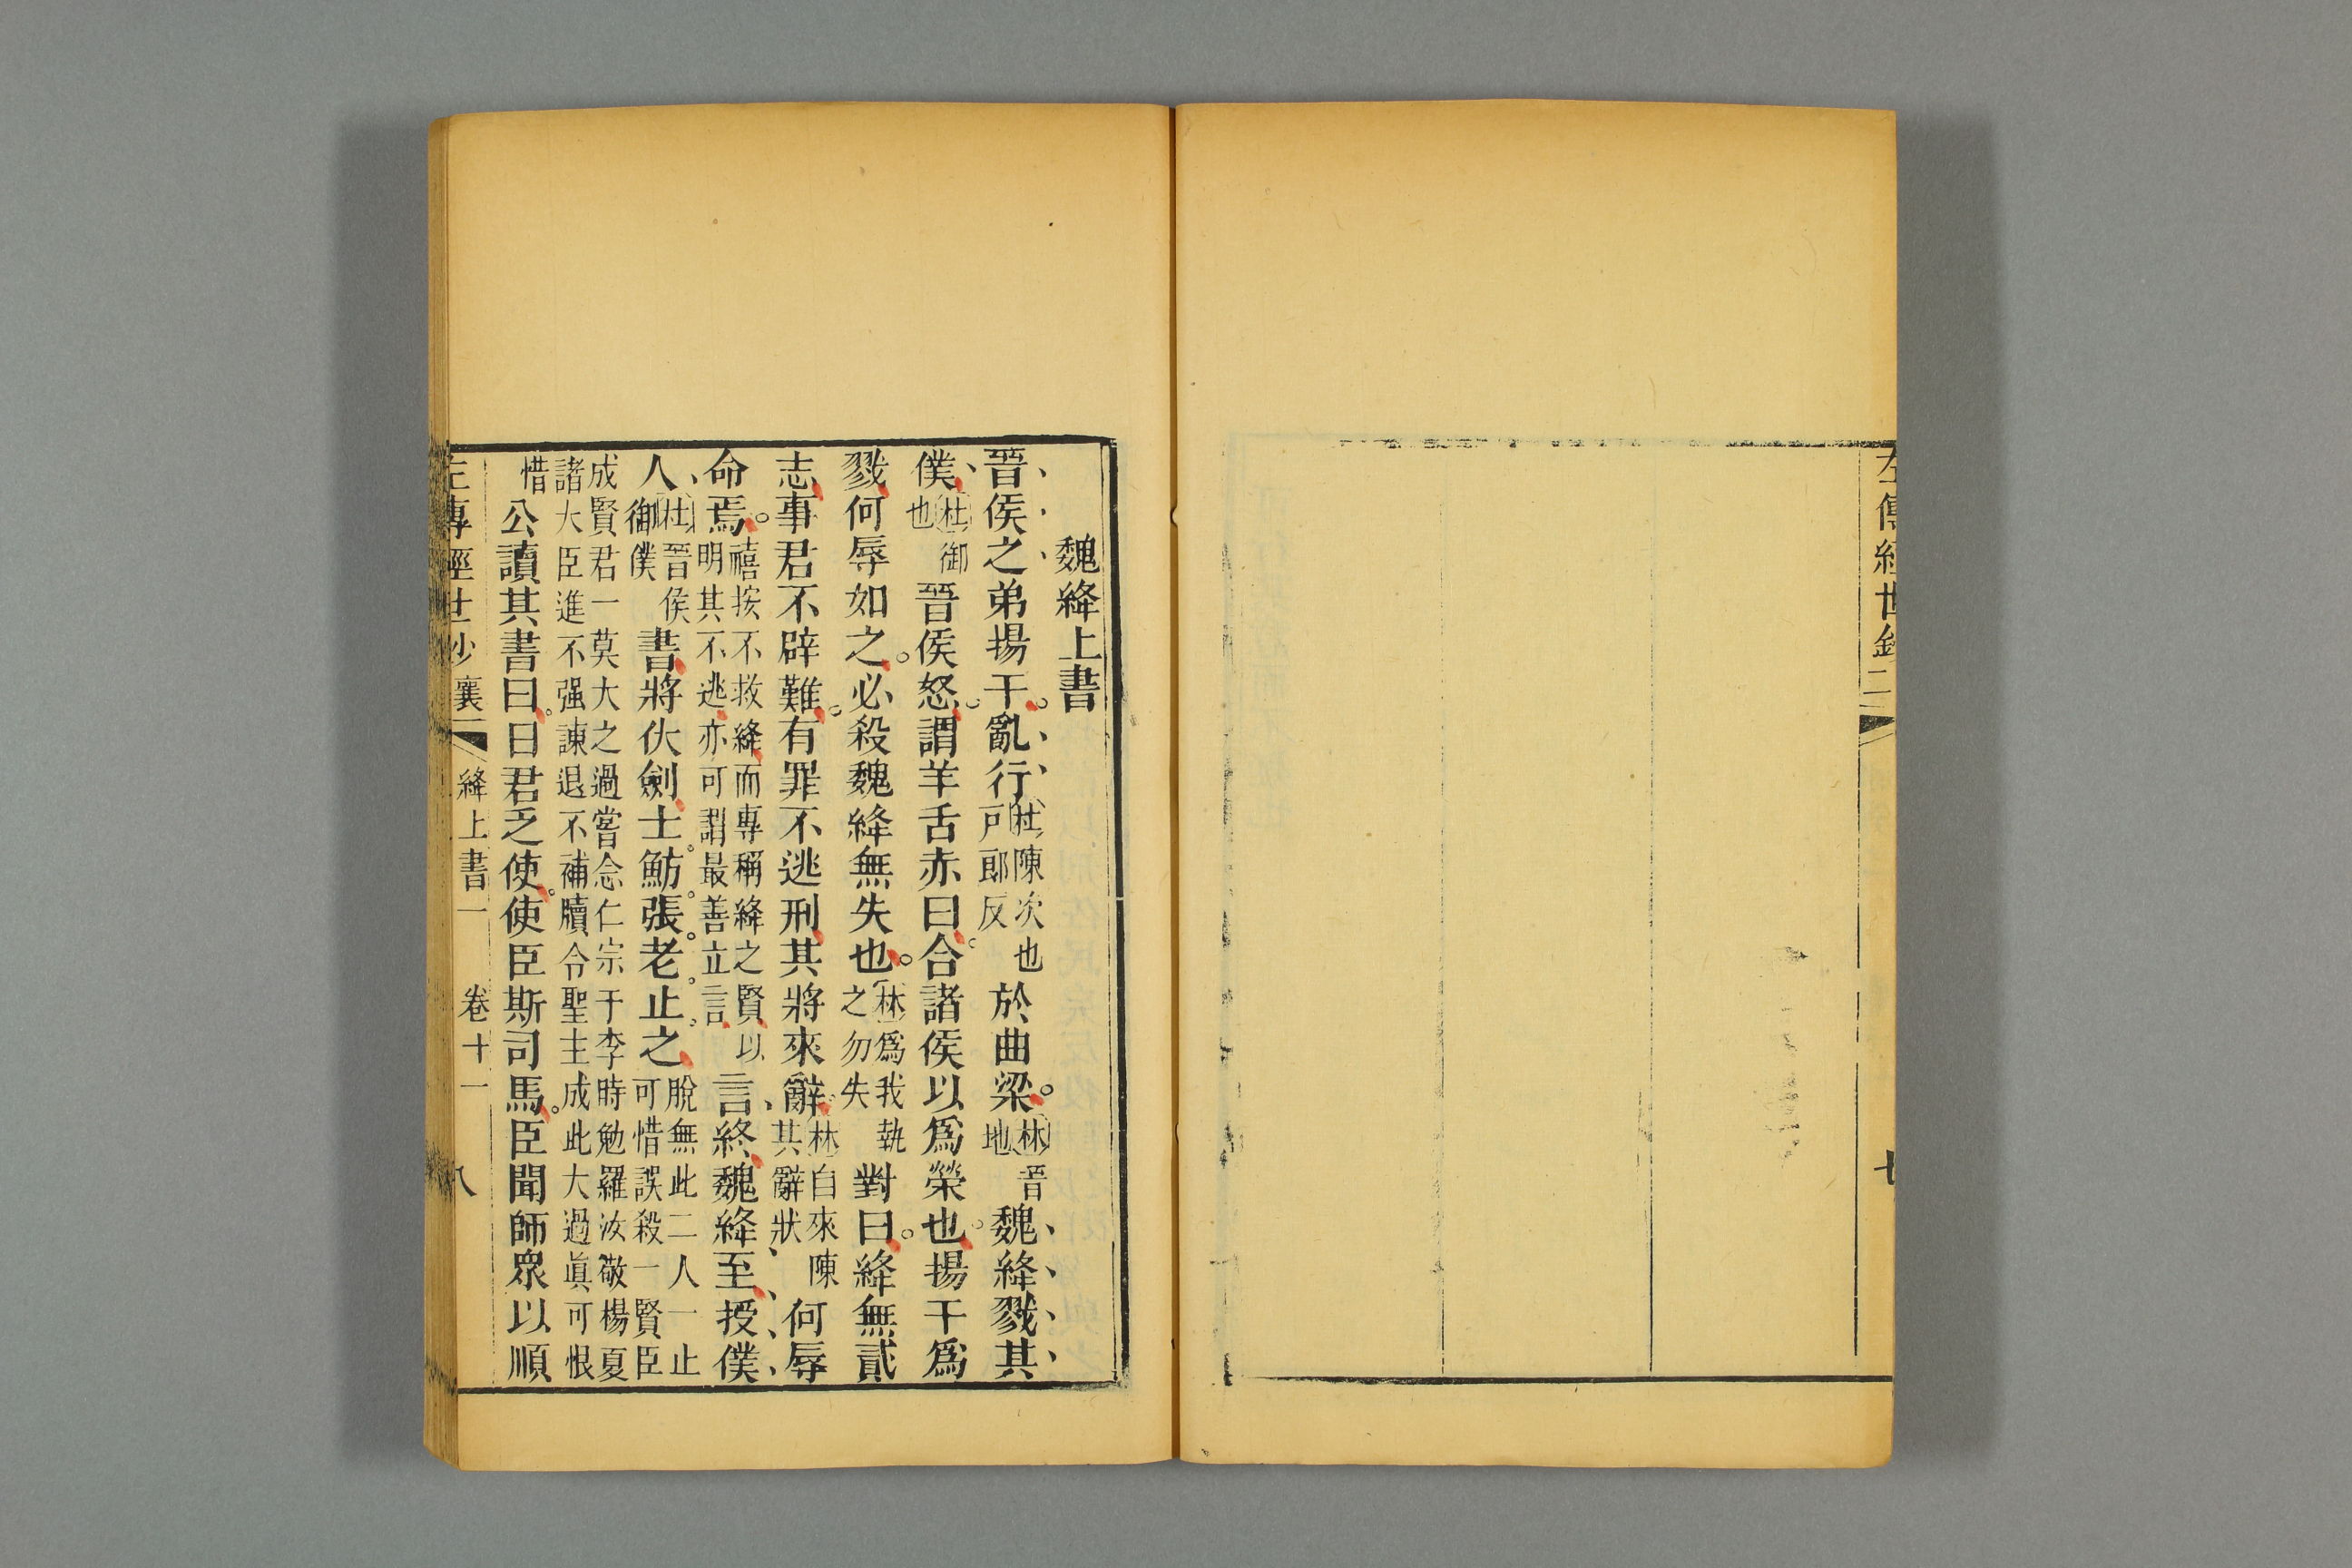 左傳經世鈔二
七
魏絳上書
晉侯之弟揚干亂行杜陳次也戸郎反於曲梁林晉地魏絳戮其
僕杜御也晉侯怒謂羊舌赤曰合諸侯以爲榮也揚干爲
戮何辱如之必殺魏絳無失也林爲我執之勿失對曰絳無貳
志事君不辟難有罪不逃刑其將來辭林自來陳其辭狀何辱
命焉禧按不救絳而專稱絳之賢以明其不逃亦可謂最善立言言終魏絳至授僕
人杜晉侯御僕書將伏劍士魴張老止之脫無此二人一止可惜誤殺一賢臣
成賢君一莫大之過嘗念仁宗于李時勉羅汝敬楊夏諸大臣進不强諫退不補牘令聖主成此大過眞可恨
惜公讀其書曰日君乏使使臣斯司馬臣聞師衆以順
左傳經世鈔襄一 絳上書一 卷十一 八